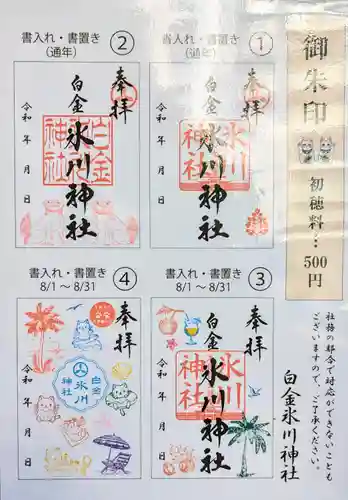 御朱印
初穂料…500円
社務の都合で対応ができないことも
ございますので、ご了承ください。
白金氷川神社
①
書入れ・書置き
（通年）
奉拝
白金
氷川神社
氷川神社
令和　年　月　日
②
書入れ・書置き
（通年）
奉拝
白金
氷川神社
白金氷川神社
令和　年　月　日
③
書入れ・書置き
8/1～8/31
奉拝
白金
氷川神社
氷川神社
令和　年　月　日
④
書入れ・書置き
8/1～8/31
奉拝
白金
氷川
神社
令和　年　月　日